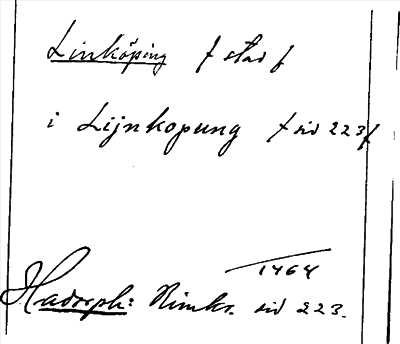 Linköping f stad f
i Lijnkopung f sid 223 f
1464
Hadorph: Rimkr. sid 223.